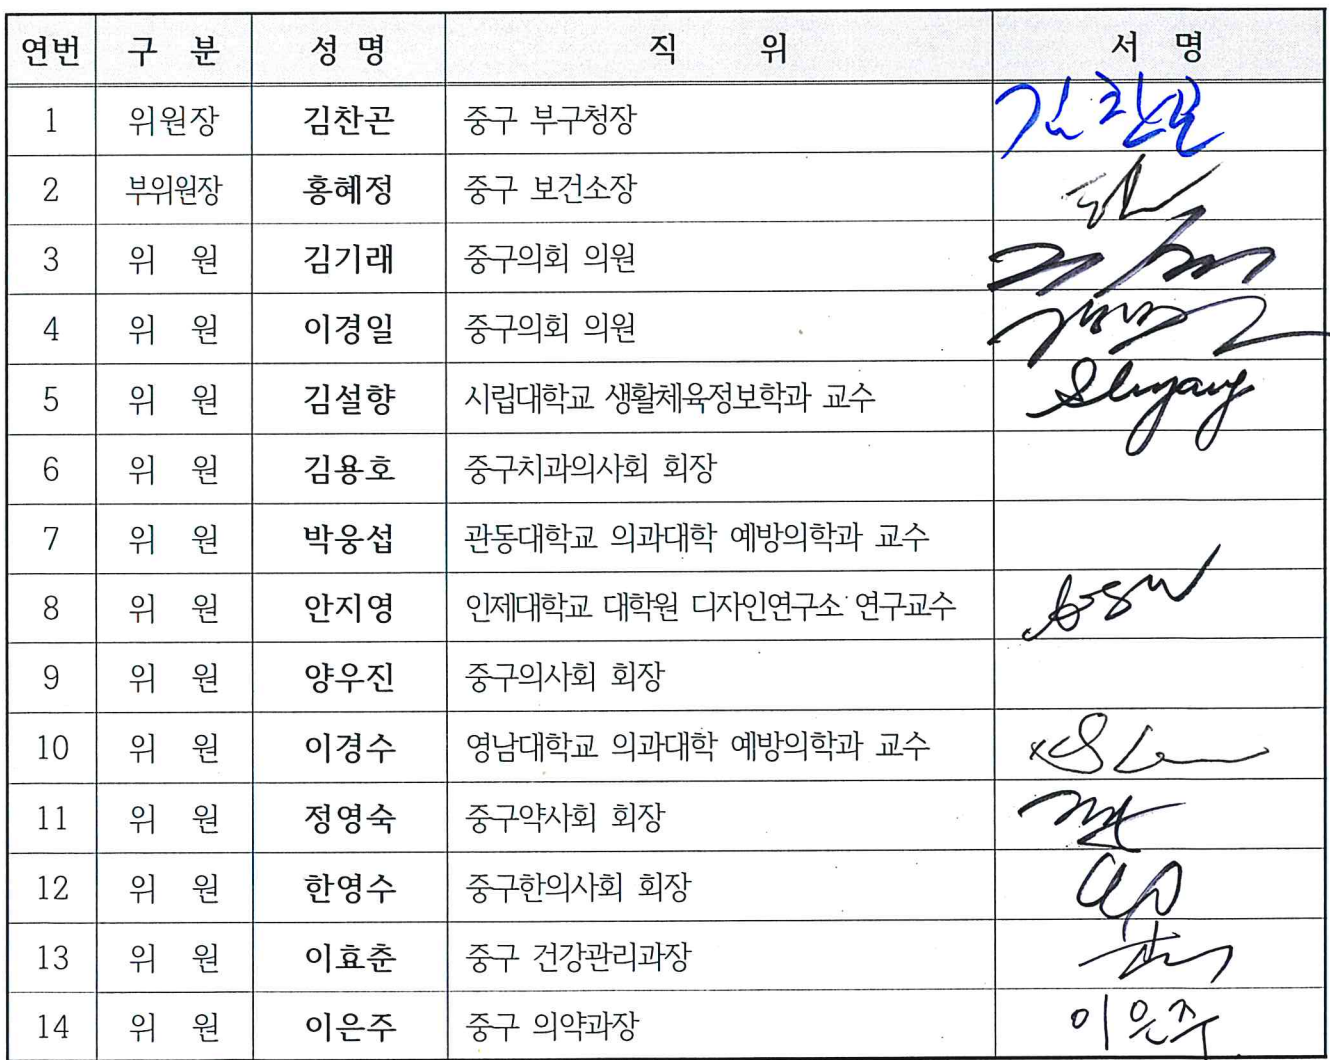 연번 구 분 성 명 직 위 서 명
1 위원장 김찬곤 중구 부구청장 김찬곤
2 부위원장 홍혜정 중구 보건소장
3 위 원 김기래 중구의회 의원
4 위 원 이경일 중구의회 의원
5 위 원 김설향 시립대학교 생활체육정보학과 교수
6 위 원 김용호 중구치과의사회 회장
7 위 원 박웅섭 관동대학교 의과대학 예방의학과 교수
8 위 원 안지영 인제대학교 대학원 디자인연구소 연구교수
9 위 원 양우진 중구의사회 회장
10 위 원 이경수 영남대학교 의과대학 예방의학과 교수
11 위 원 정영숙 중구약사회 회장
12 위 원 한영수 중구한의사회 회장
13 위 원 이효춘 중구 건강관리과장
14 위 원 이은주 중구 의약과장 이은주